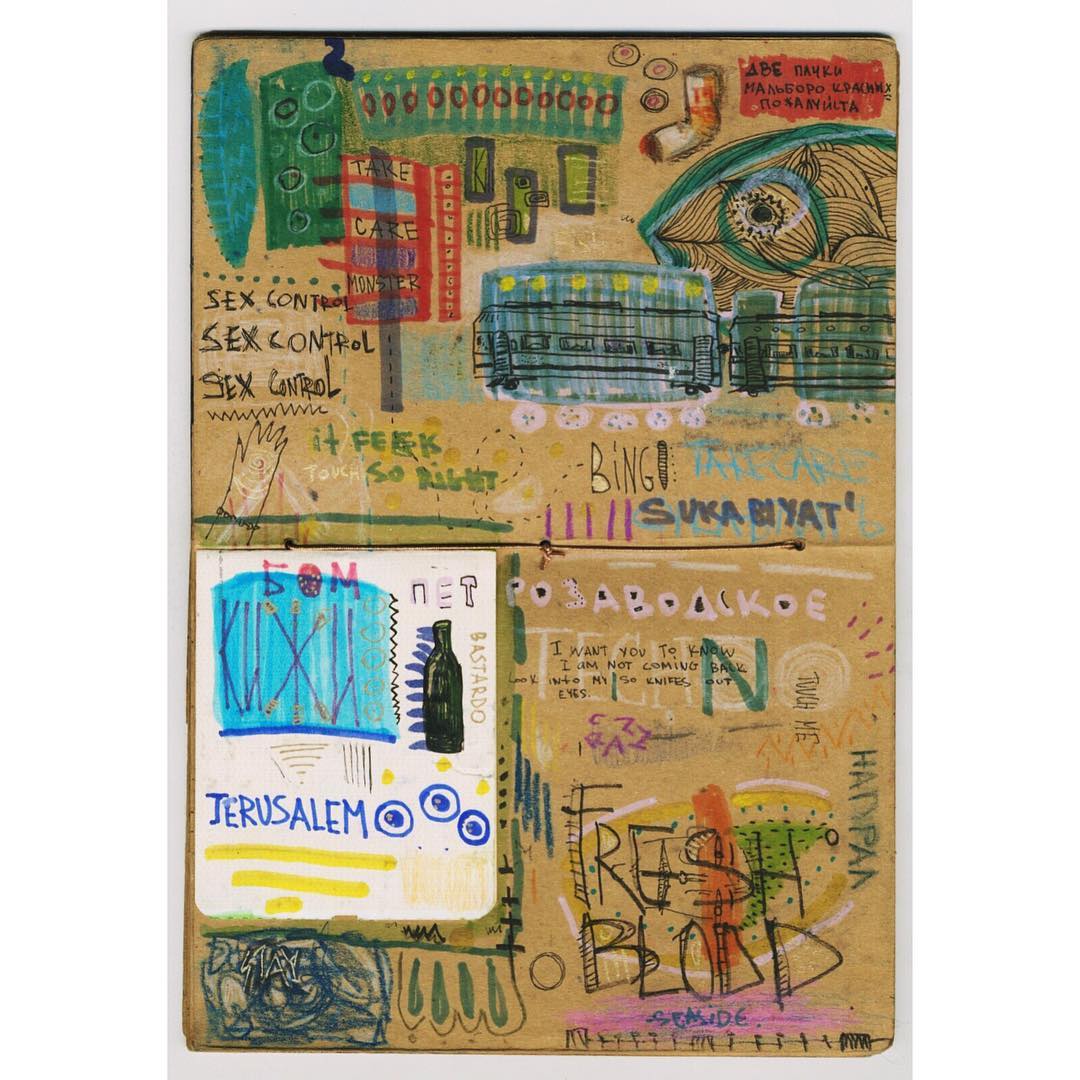 2
ДВЕ ПАЧКИ
МАЛЬБОРО КРАСНЫХ
ПОЖАЛУЙСТА
TAKE
CARE
MONSTER
SEX CONTROL
SEX CONTROL
SEX CONTROL
it FEEK
TOUCH SO RIGHT
BING!
TAKE CARE
SUKABLYAT'
БОМ
КИЖИ
ПЕТРОЗАВОДСКОЕ
BASTARDO
I WANT YOU TO KNOW
I AM NOT COMING BACK
LOOK INTO MY SO KNIFES OUT
EYES.
TOUCH ME
JERUSALEM
НАТУРАЛ
FRESH
BLOOD
SEASIDE
STAY